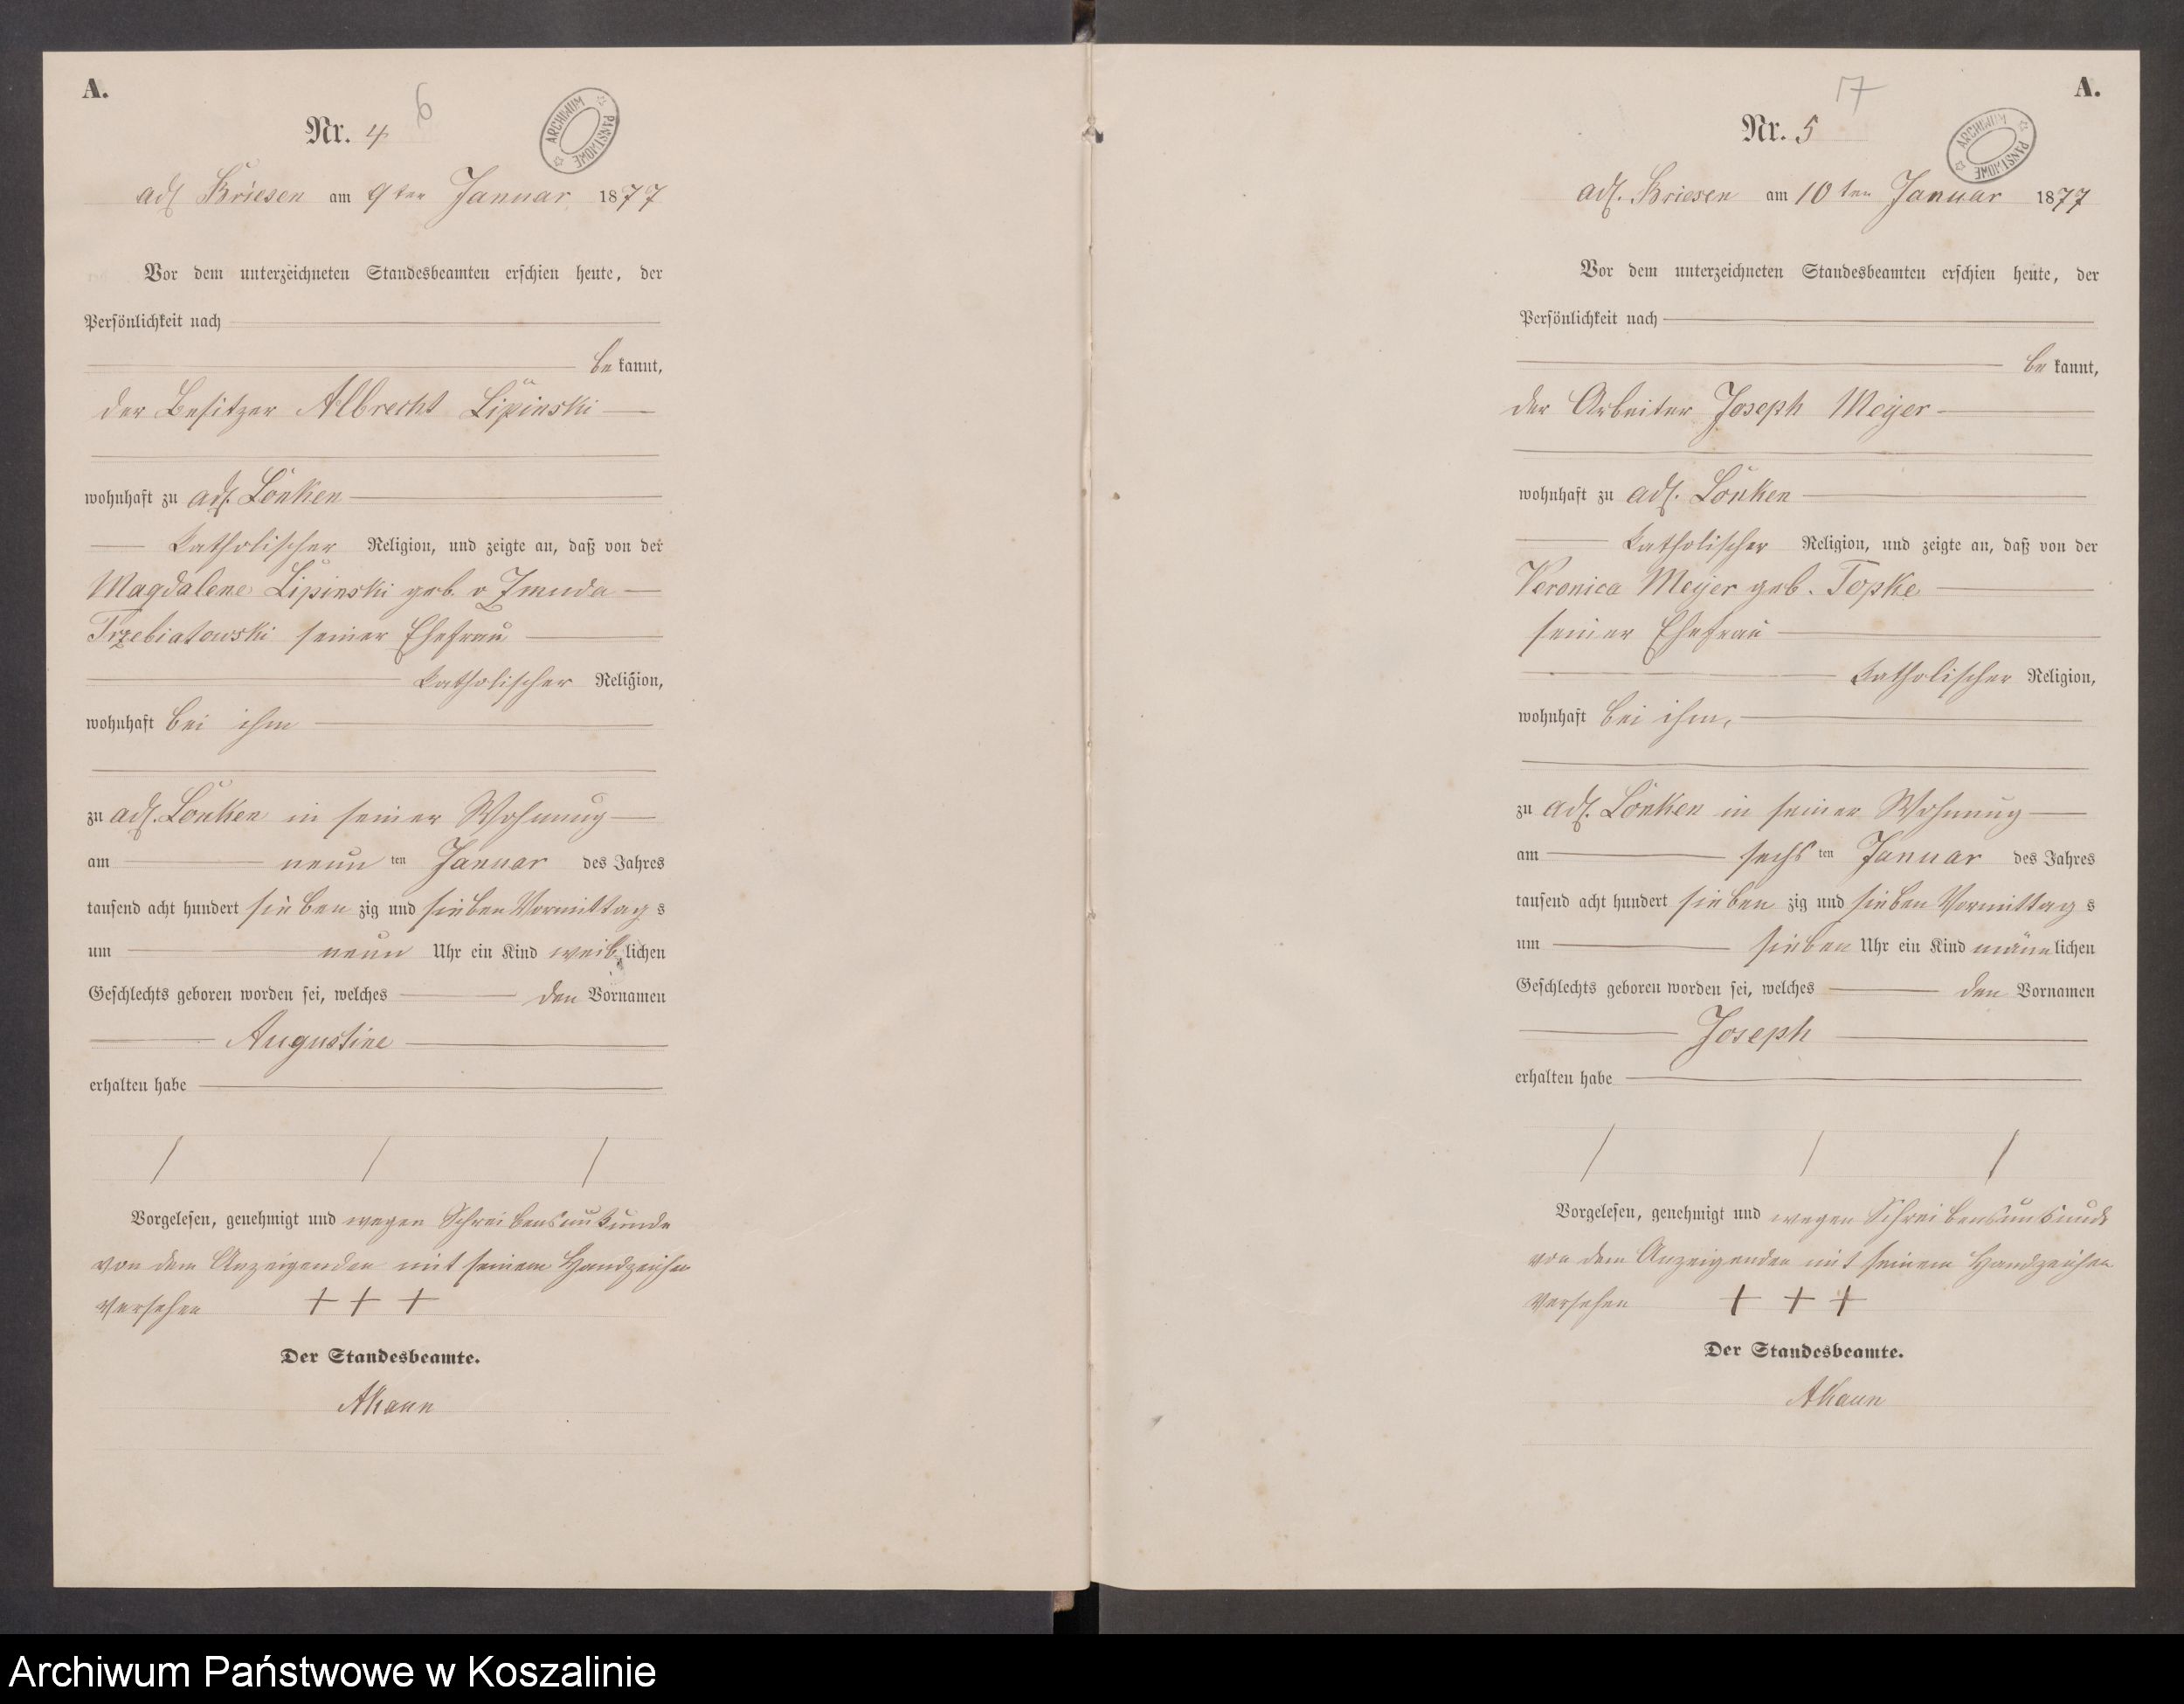 A.
6
Nr. 4
ARCHIWUM PAŃSTWOWE
adl Briesen am 9ten Januar 1877
Vor dem unterzeichneten Standesbeamten erschien heute, der
Persönlichkeit nach
be kannt,
der Besitzer Albrecht Lipinski
wohnhaft zu adl. Lonken
katholischer Religion, und zeigte an, daß von der
Magdalene Lipinski geb. v Zmuda
Trzebiatowski seiner Ehefrau
katholischer Religion,
wohnhaft bei ihm
zu adl. Lonken in seiner Wohnung
am neun ten Januar des Jahres
tausend acht hundert sieben zig und sieben Vormittag s
um neun Uhr ein Kind weib lichen
Geschlechts geboren worden sei, welches den Vornamen
Augustine
erhalten habe
Vorgelesen, genehmigt und wegen Schreibensunkunde
von dem Anzeigenden mit seinem Handzeichen
versehen + + +
Der Standesbeamte.
AKaun
A.
7
Nr. 5
ARCHIWUM PAŃSTWOWE
adl. Briesen am 10ten Januar 1877
Vor dem unterzeichneten Standesbeamten erschien heute, der
Persönlichkeit nach
be kannt,
der Arbeiter Joseph Meyer
wohnhaft zu adl. Lonken
katholischer Religion, und zeigte an, daß von der
Veronica Meyer geb. Topke
seiner Ehefrau
katholischer Religion,
wohnhaft bei ihm,
zu adl. Lonken in seiner Wohnung
am sechs ten Januar des Jahres
tausend acht hundert sieben zig und sieben Vormittag s
um sieben Uhr ein Kind männ lichen
Geschlechts geboren worden sei, welches den Vornamen
Joseph
erhalten habe
Vorgelesen, genehmigt und wegen Schreibensunkunde
von dem Anzeigenden mit seinem Handzeichen
versehen + + +
Der Standesbeamte.
AKaun
Archiwum Państwowe w Koszalinie